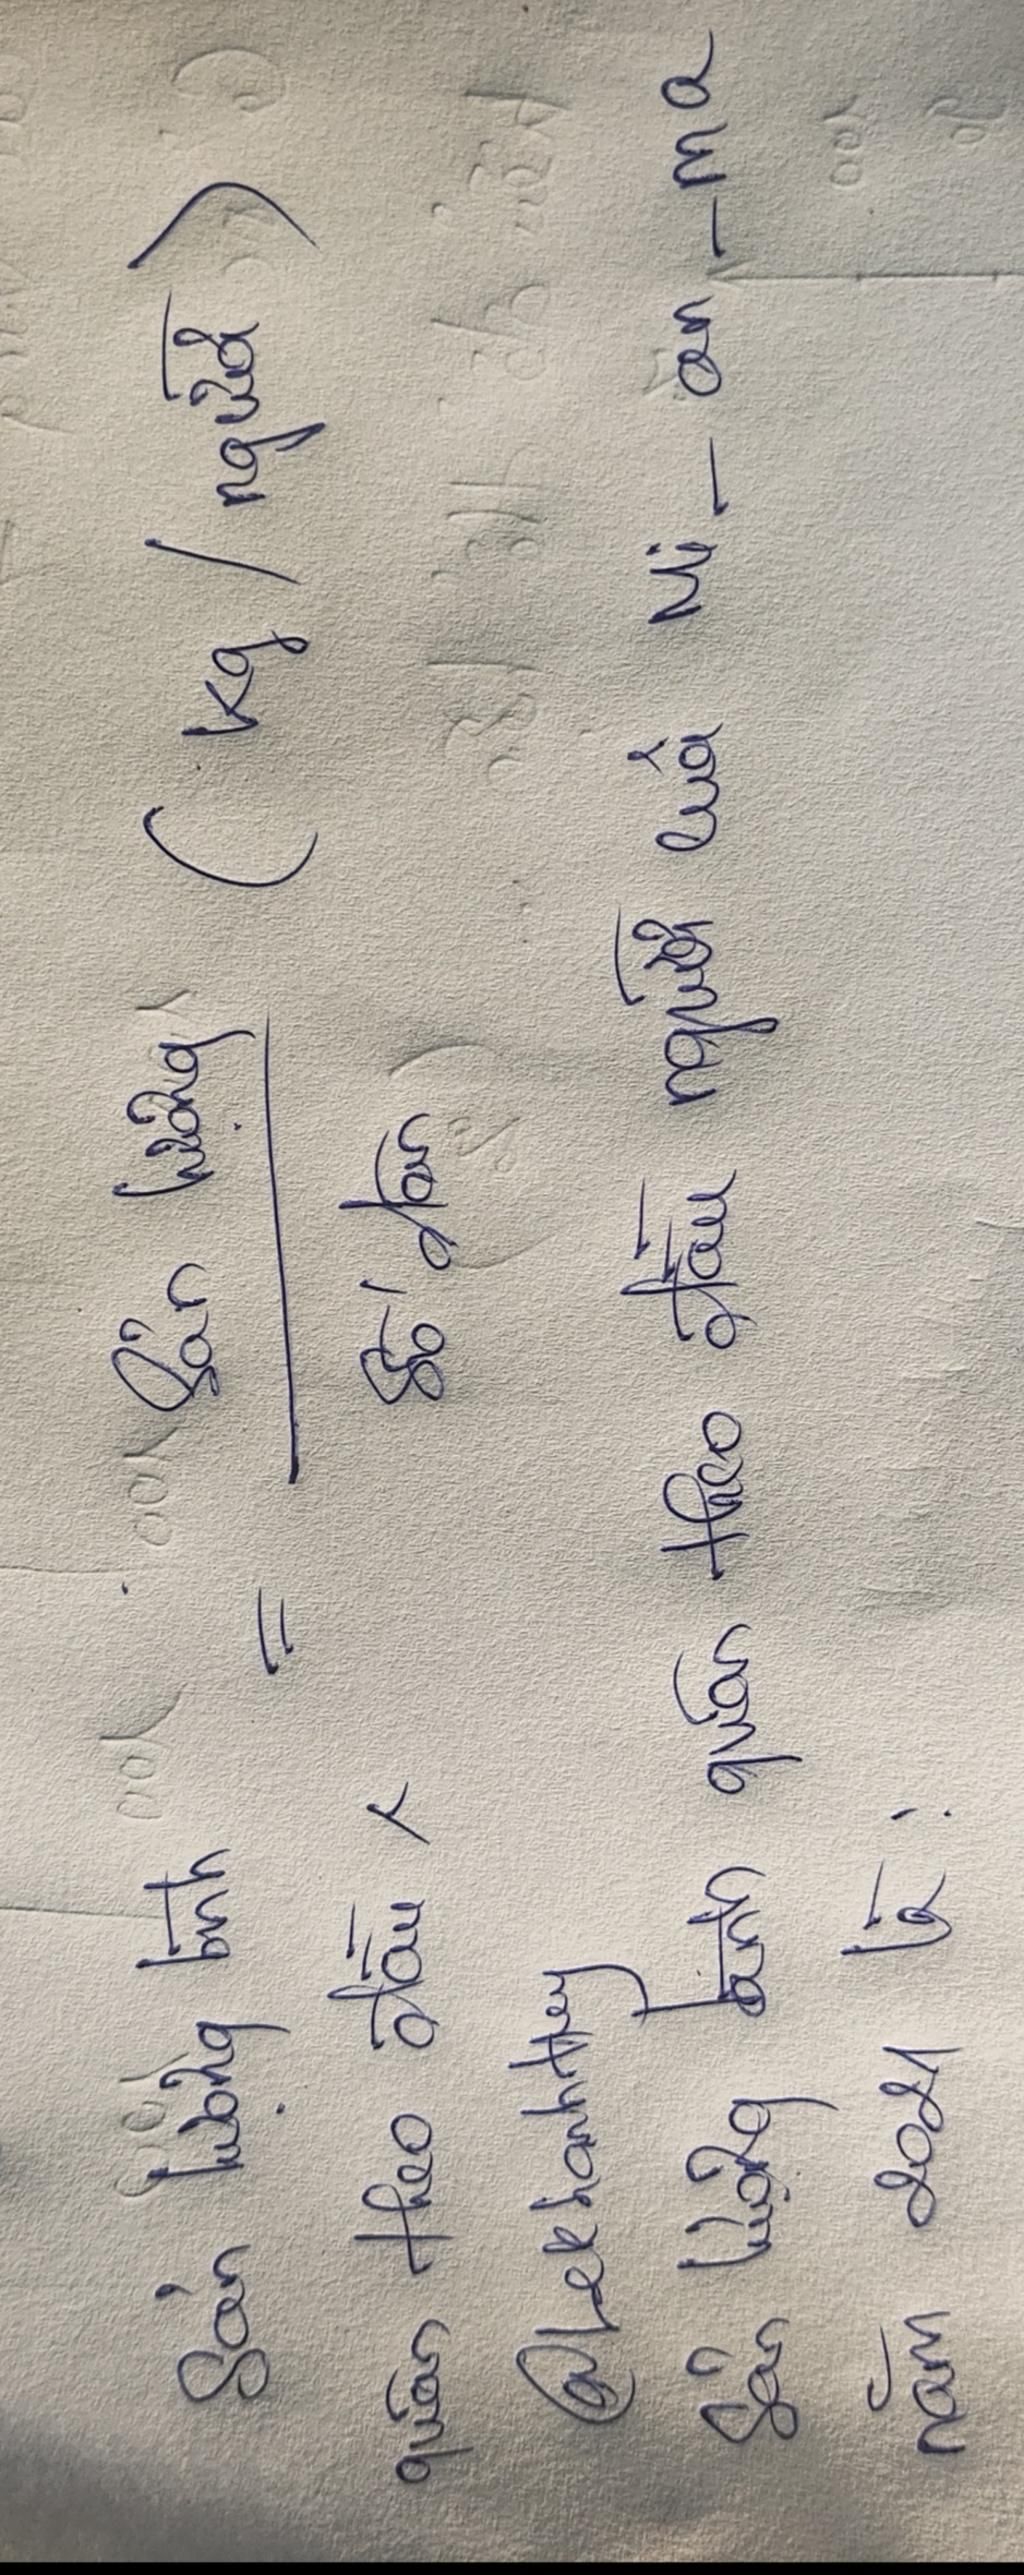 Sản lượng bình = Sản lượng ( kg / người )
quân theo đầu Số dân
@lekhanhthuy
Sản lượng bình quân theo đầu người của Mi - an - ma
năm 2021 là :